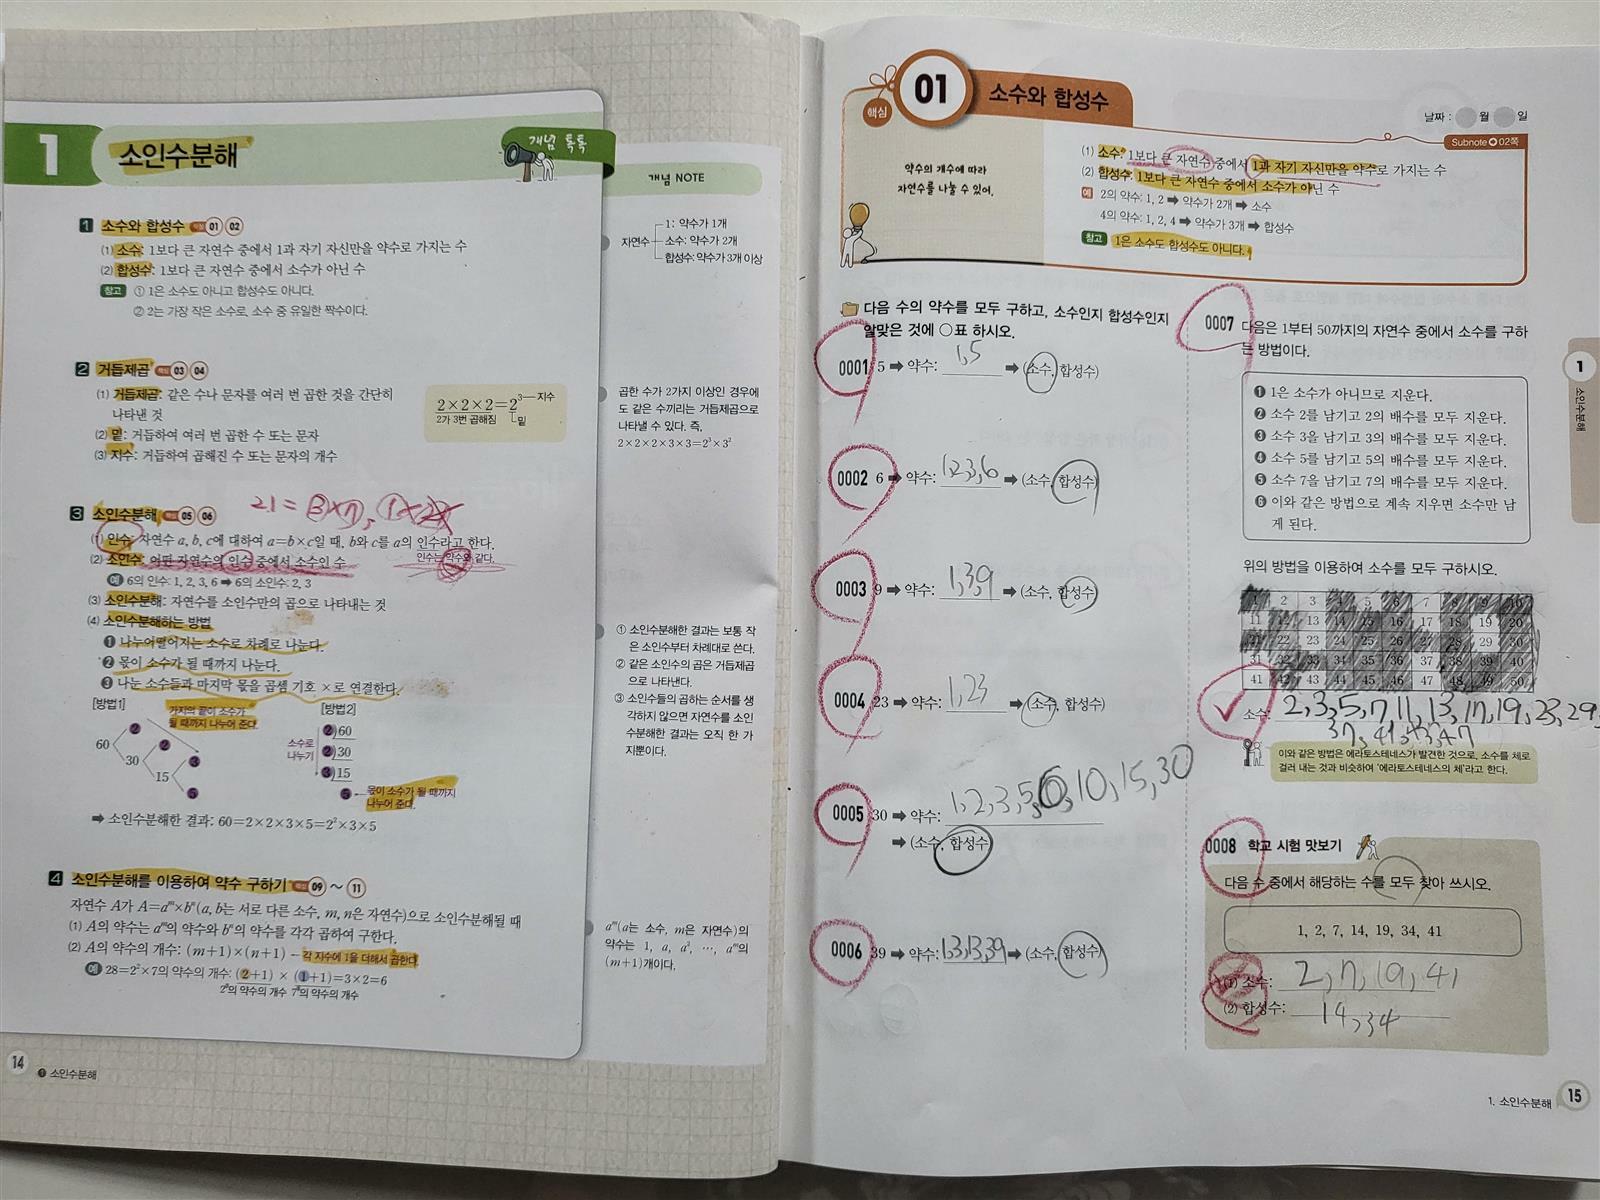 1 소인수분해
개념 톡톡
개념 NOTE
1 소수와 합성수 핵심 01 02
(1) 소수: 1보다 큰 자연수 중에서 1과 자기 자신만을 약수로 가지는 수
(2) 합성수: 1보다 큰 자연수 중에서 소수가 아닌 수
참고 ① 1은 소수도 아니고 합성수도 아니다.
② 2는 가장 작은 소수로, 소수 중 유일한 짝수이다.
자연수
1: 약수가 1개
소수: 약수가 2개
합성수: 약수가 3개 이상
2 거듭제곱 핵심 03 04
(1) 거듭제곱: 같은 수나 문자를 여러 번 곱한 것을 간단히
나타낸 것
(2) 밑: 거듭하여 여러 번 곱한 수 또는 문자
(3) 지수: 거듭하여 곱해진 수 또는 문자의 개수
2×2×2=2³ 지수
2가 3번 곱해짐 밑
곱한 수가 2가지 이상인 경우에
도 같은 수끼리는 거듭제곱으로
나타낼 수 있다. 즉,
2×2×2×3×3=2³×3²
21 = 3×7,
3 소인수분해 핵심 05 06
(1) 인수: 자연수 a, b, c에 대하여 a=b×c일 때, b와 c를 a의 인수라고 한다.
인수는 약수와 같다.
(2) 소인수: 어떤 자연수의 인수 중에서 소수인 수
예 6의 인수: 1, 2, 3, 6 ➡ 6의 소인수: 2, 3
(3) 소인수분해: 자연수를 소인수만의 곱으로 나타내는 것
(4) 소인수분해하는 방법
❶ 나누어떨어지는 소수로 차례로 나눈다.
❷ 몫이 소수가 될 때까지 나눈다.
❸ 나눈 소수들과 마지막 몫을 곱셈 기호 ×로 연결한다.
[방법1]
가지의 끝이 소수가
될 때까지 나누어 준다.
60 2
30 2
15 3
5
[방법2]
소수로
나누기
2)60
2)30
3)15
5 ← 몫이 소수가 될 때까지
나누어 준다.
➡ 소인수분해한 결과: 60=2×2×3×5=2²×3×5
① 소인수분해한 결과는 보통 작
은 소인수부터 차례대로 쓴다.
② 같은 소인수의 곱은 거듭제곱
으로 나타낸다.
③ 소인수들의 곱하는 순서를 생
각하지 않으면 자연수를 소인
수분해한 결과는 오직 한 가
지뿐이다.
4 소인수분해를 이용하여 약수 구하기 핵심 09 ~ 11
자연수 A가 A=aᵐ×bⁿ(a, b는 서로 다른 소수, m, n은 자연수)으로 소인수분해될 때
(1) A의 약수는 aᵐ의 약수와 bⁿ의 약수를 각각 곱하여 구한다.
(2) A의 약수의 개수: (m+1)×(n+1) ← 각 지수에 1을 더해서 곱한다.
예 28=2²×7의 약수의 개수: (2+1)×(1+1)=3×2=6
2²의 약수의 개수 7¹의 약수의 개수
aᵐ(a는 소수, m은 자연수)의
약수는 1, a, a², …, aᵐ의
(m+1)개이다.
14 ❶ 소인수분해
핵심 01 소수와 합성수
날짜 : 월 일
Subnote 02쪽
약수의 개수에 따라
자연수를 나눌 수 있어.
(1) 소수: 1보다 큰 자연수 중에서 1과 자기 자신만을 약수로 가지는 수
(2) 합성수: 1보다 큰 자연수 중에서 소수가 아닌 수
예 2의 약수: 1, 2 ➡ 약수가 2개 ➡ 소수
4의 약수: 1, 2, 4 ➡ 약수가 3개 ➡ 합성수
참고 1은 소수도 합성수도 아니다.
다음 수의 약수를 모두 구하고, 소수인지 합성수인지
알맞은 것에 ○표 하시오.
0001 5 ➡ 약수: 1,5 ➡ (소수, 합성수)
0002 6 ➡ 약수: 1,2,3,6 ➡ (소수, 합성수)
0003 9 ➡ 약수: 1,3,9 ➡ (소수, 합성수)
0004 23 ➡ 약수: 1,23 ➡ (소수, 합성수)
0005 30 ➡ 약수: 1,2,3,5,6,10,15,30
➡ (소수, 합성수)
0006 39 ➡ 약수: 1,3,13,39 ➡ (소수, 합성수)
0007 다음은 1부터 50까지의 자연수 중에서 소수를 구하
는 방법이다.
❶ 1은 소수가 아니므로 지운다.
❷ 소수 2를 남기고 2의 배수를 모두 지운다.
❸ 소수 3을 남기고 3의 배수를 모두 지운다.
❹ 소수 5를 남기고 5의 배수를 모두 지운다.
❺ 소수 7을 남기고 7의 배수를 모두 지운다.
❻ 이와 같은 방법으로 계속 지우면 소수만 남
게 된다.
위의 방법을 이용하여 소수를 모두 구하시오.
2 3 4 5 6 7 8 9 10
11 12 13 14 15 16 17 18 19 20
21 22 23 24 25 26 27 28 29 30
31 32 33 34 35 36 37 38 39 40
41 42 43 44 45 46 47 48 49 50
소수: 2,3,5,7,11,13,17,19,23,29,
37,41,43,47
이와 같은 방법은 에라토스테네스가 발견한 것으로, 소수를 체로
걸러 내는 것과 비슷하여 '에라토스테네스의 체'라고 한다.
0008 학교 시험 맛보기
다음 수 중에서 해당하는 수를 모두 찾아 쓰시오.
1, 2, 7, 14, 19, 34, 41
(1) 소수: 2,7,19,41
(2) 합성수: 14,34
1
소인수분해
1. 소인수분해 15